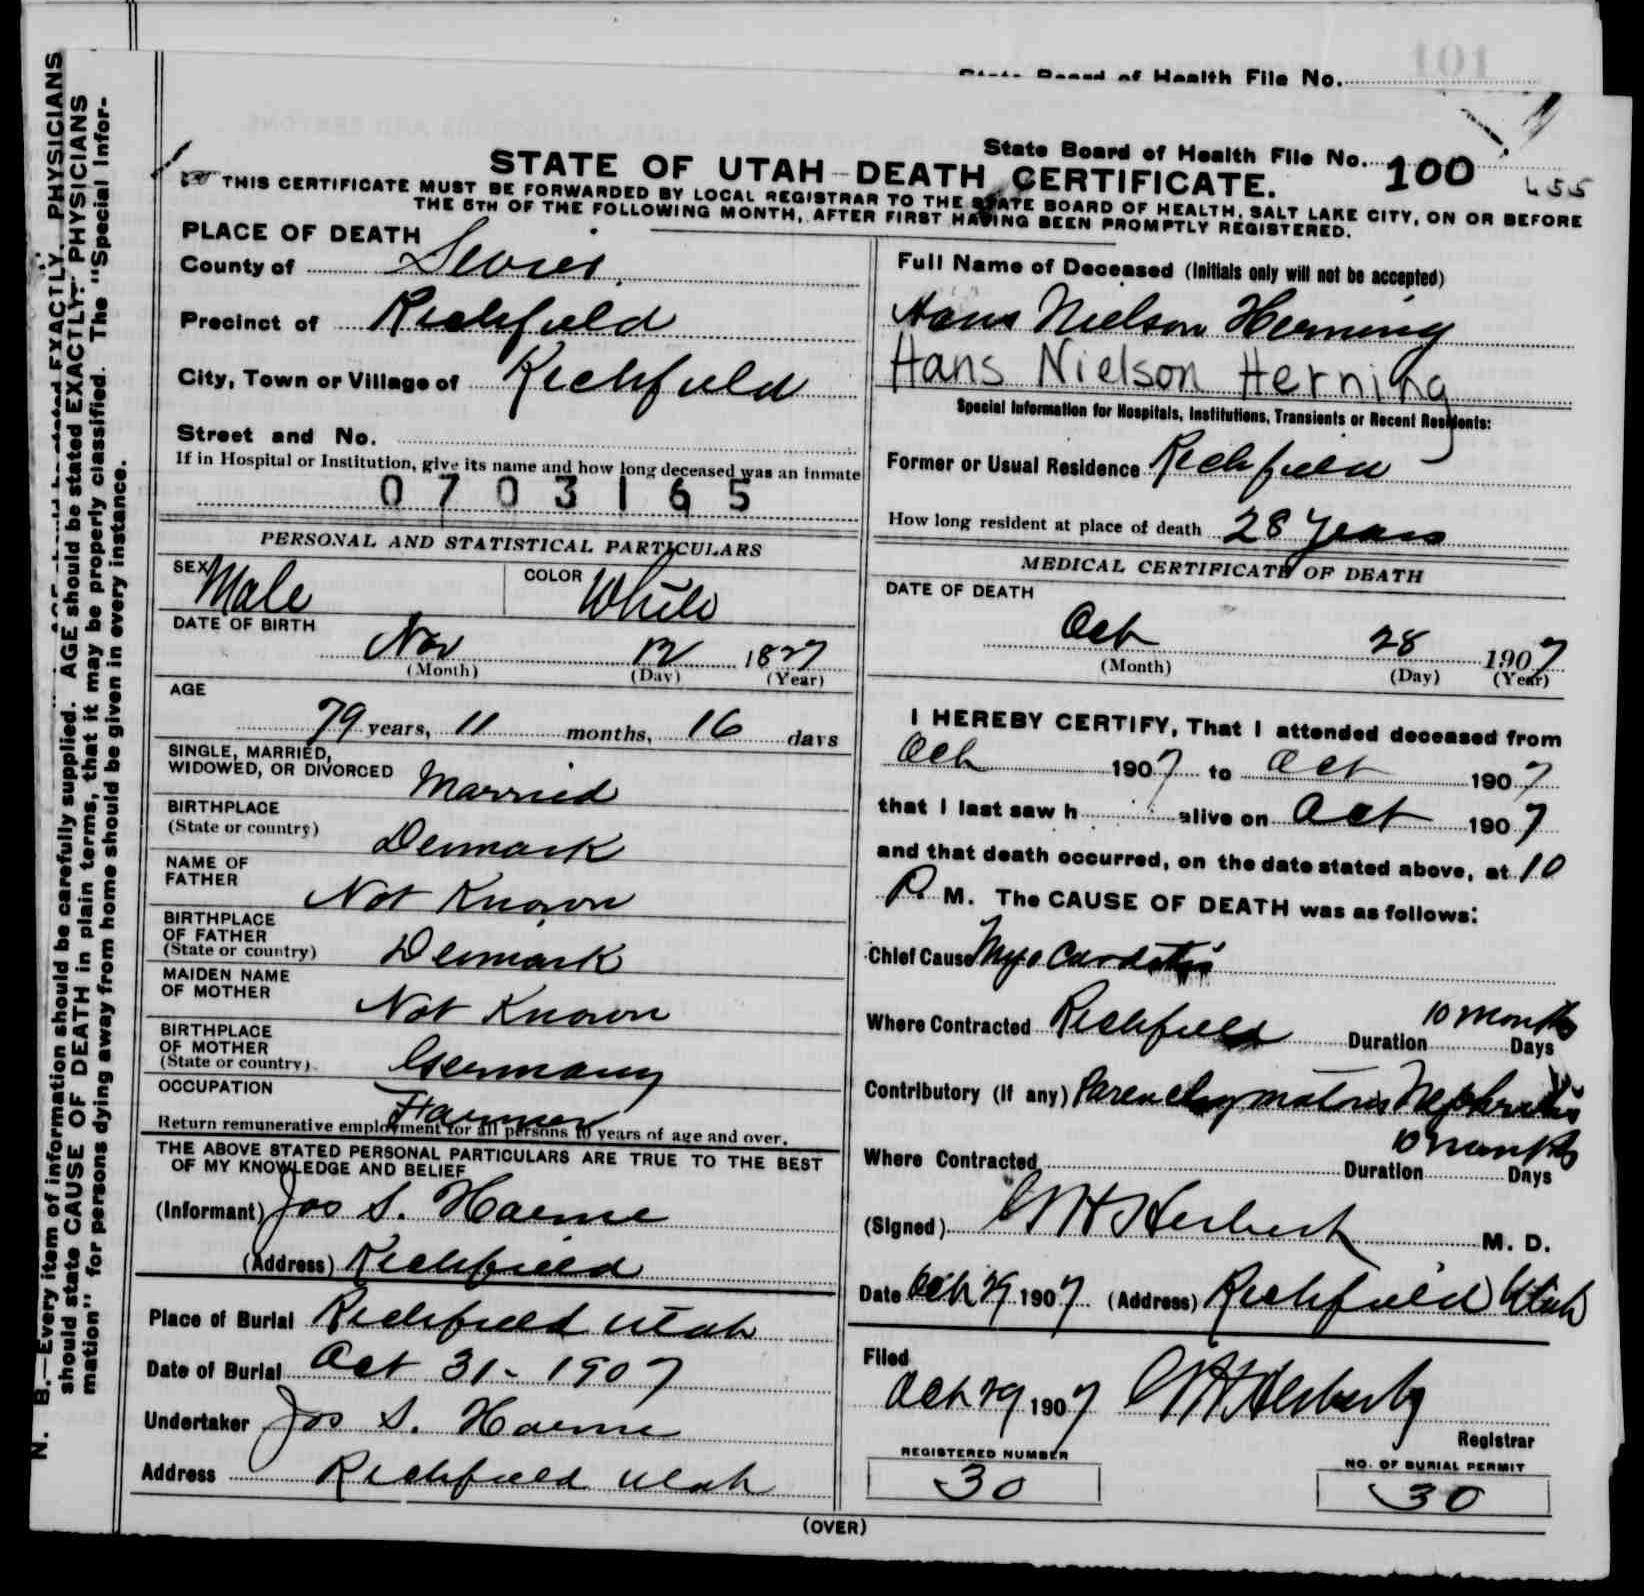 State Board of Health File No.
101
State Board of Health File No. 100
455
STATE OF UTAH—DEATH CERTIFICATE.
THIS CERTIFICATE MUST BE FORWARDED BY LOCAL REGISTRAR TO THE STATE BOARD OF HEALTH, SALT LAKE CITY, ON OR BEFORE
THE 5TH OF THE FOLLOWING MONTH, AFTER FIRST HAVING BEEN PROMPTLY REGISTERED.
PLACE OF DEATH
County of Sevier
Precinct of Richfield
City, Town or Village of Richfield
Street and No.
If in Hospital or Institution, give its name and how long deceased was an inmate
0703165
Full Name of Deceased (Initials only will not be accepted)
Hans Nielson Herning
Hans Nielson Herning
Special Information for Hospitals, Institutions, Transients or Recent Residents:
Former or Usual Residence Richfield
How long resident at place of death 28 years
PERSONAL AND STATISTICAL PARTICULARS
SEX Male COLOR White
DATE OF BIRTH
Nov 12 1827
(Month) (Day) (Year)
AGE
79 years, 11 months, 16 days
SINGLE, MARRIED,
WIDOWED, OR DIVORCED Married
BIRTHPLACE
(State or country) Denmark
NAME OF
FATHER Not Known
BIRTHPLACE
OF FATHER
(State or country) Denmark
MAIDEN NAME
OF MOTHER Not Known
BIRTHPLACE
OF MOTHER
(State or country) Germany
OCCUPATION Farmer
Return remunerative employment for all persons 10 years of age and over.
THE ABOVE STATED PERSONAL PARTICULARS ARE TRUE TO THE BEST
OF MY KNOWLEDGE AND BELIEF
(Informant) Jos S. Horne
(Address) Richfield
Place of Burial Richfield Utah
Date of Burial Oct 31 - 1907
Undertaker Jos S. Horne
Address Richfield Utah
MEDICAL CERTIFICATE OF DEATH
DATE OF DEATH
Oct 28 1907
(Month) (Day) (Year)
I HEREBY CERTIFY, That I attended deceased from
Oct 1907 to Oct 1907
that I last saw h alive on Oct 1907
and that death occurred, on the date stated above, at 10
P. M. The CAUSE OF DEATH was as follows:
Chief Cause Myocarditis
Where Contracted Richfield Duration 10 months Days
Contributory (if any) Parenchymatous Nephritis
Where Contracted Duration 10 months Days
(Signed) H Herbert M. D.
Date Oct 29 1907 (Address) Richfield Utah
Filed
Oct 29 1907 H Herbert
Registrar
REGISTERED NUMBER
30
NO. OF BURIAL PERMIT
30
(OVER)
N. B.—Every item of information should be carefully supplied. AGE should be stated EXACTLY. PHYSICIANS
should state CAUSE OF DEATH in plain terms, that it may be properly classified. The "Special Infor-
mation" for persons dying away from home should be given in every instance.